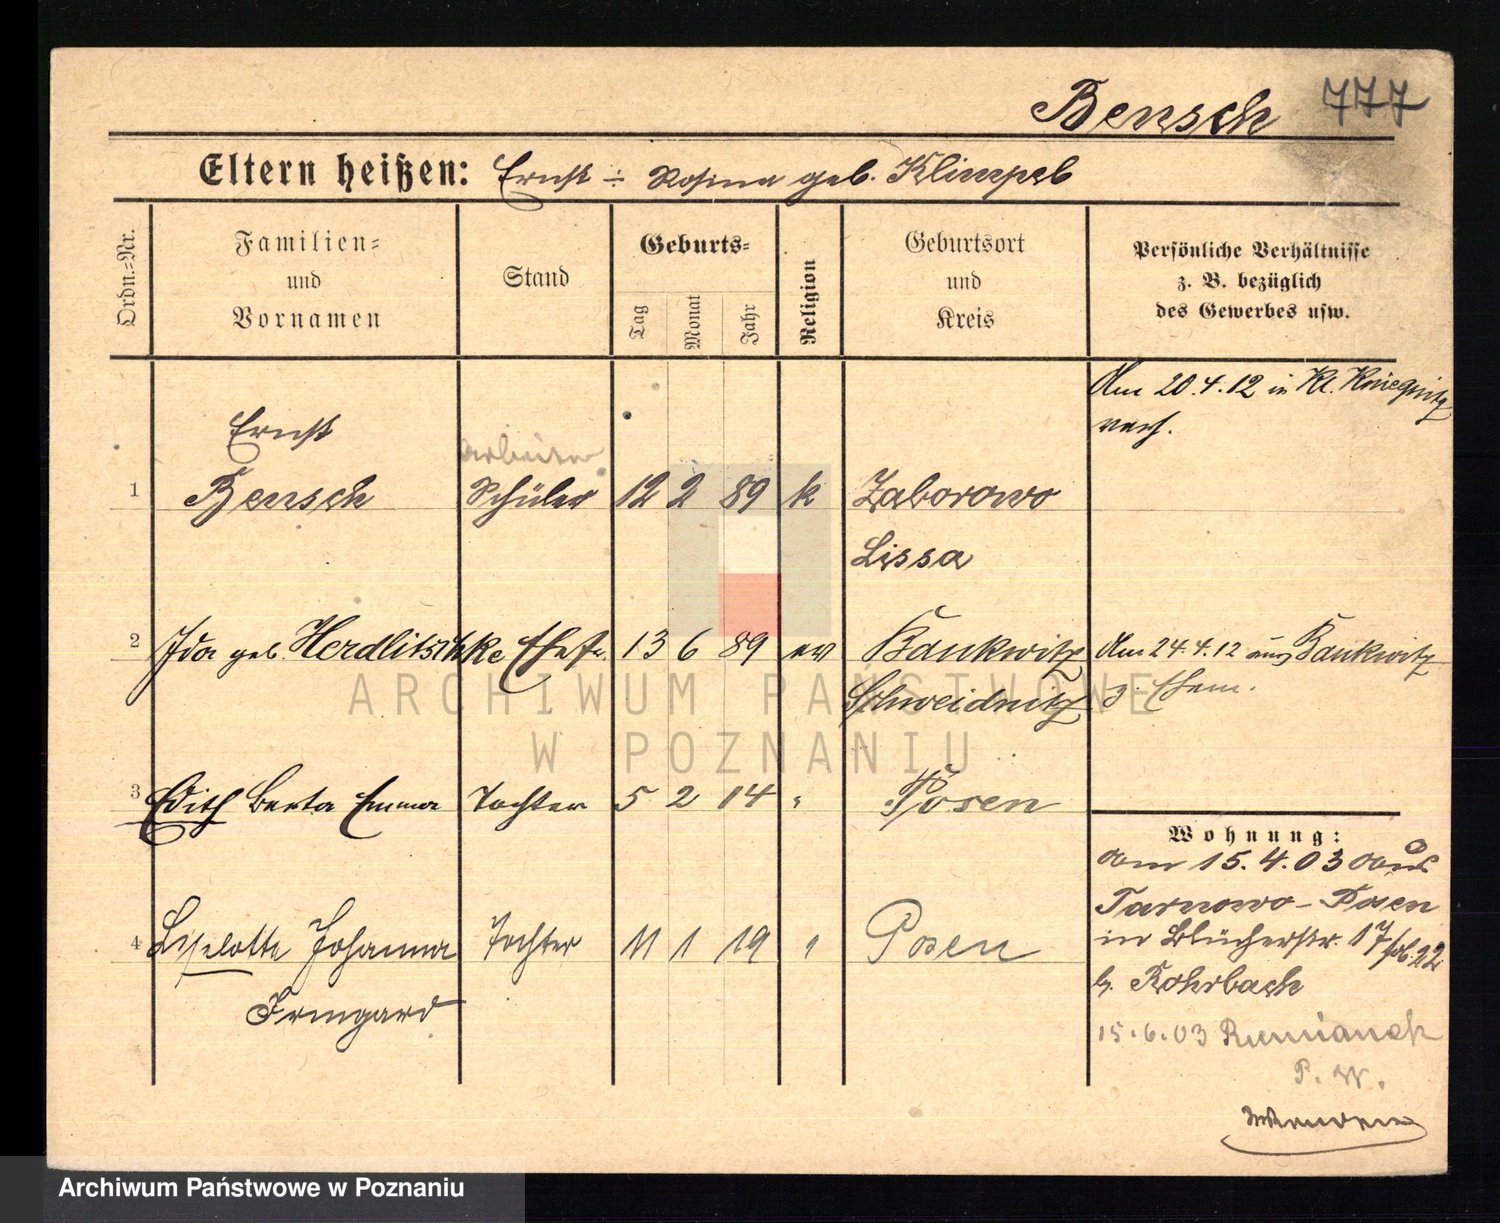 Bensch 777
Eltern heißen: Ernst ÷ Rosina geb. Klimpel
Ordn.=Nr.
Familien=
und
Vornamen
Stand
Geburts=
Tag
Monat
Jahr
Religion
Geburtsort
und
Kreis
Persönliche Verhältnisse
z. B. bezüglich
des Gewerbes usw.
Am 20.4.12 in Kl. Kniegnitz
verh.
Ernst
Arbeiter
1 Bensch Schüler 12 2 89 k Zaborowo
Lissa
2 Ida geb. Herdlitschke Ehefr. 13 6 89 ev Bankwitz Am 24.4.12 aus Bankwitz
Schweidnitz z. Ehem.
3 Edith Berta Emma Tochter 5 2 14 " Posen
Wohnung:
am 15.4.03 aus
Tarnowo - Posen
in Blücherstr. 17
b. Rohrbach
4 Liselotte Johanna Tochter 11 1 19 " Posen
Irmgard
15.6.03
P. W.
ARCHIWUM PAŃSTWOWE
W POZNANIU
Archiwum Państwowe w Poznaniu